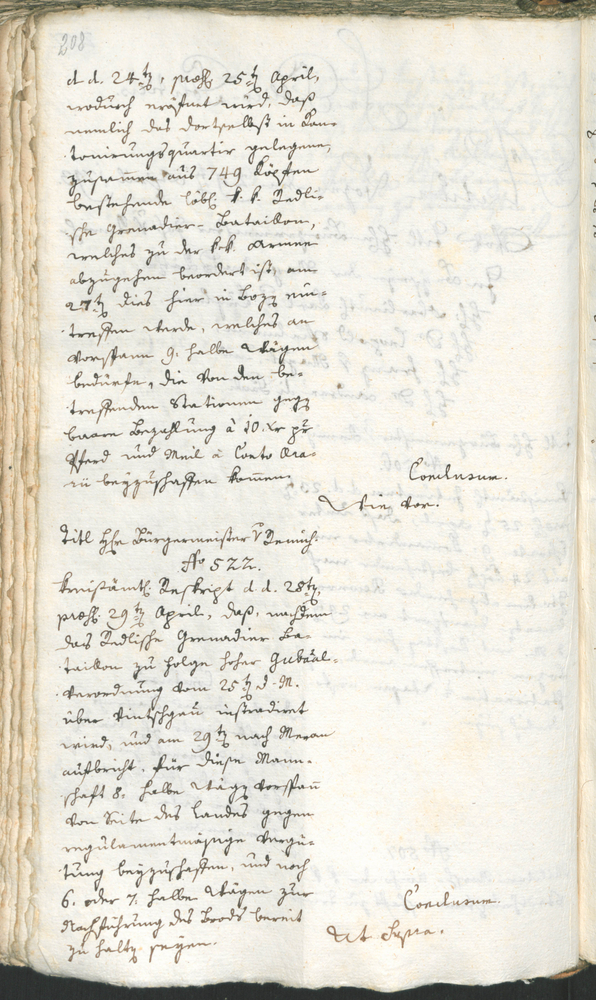 208
d. d. 24ten, præs. 25ten April,
wodurch eröfnet wird, daß
nemlich das dortselbst in Kan-
tonierungsquartir gelegene,
zusammen aus 749 Köpfen
bestehende löbl. k. k. Redli-
sche Grenadier-Bataillon,
welches zu der k. k. Armee
abzugehen beordert ist, am
27ten dies hier in Bozen ein-
treffen werde, welches an
Vorspann 9. halbe Wägen
bedürfe, die von den be-
treffenden Stationen gegen
baare Bezahlung à 10. xr pr
Pferd und Meil à Conto Æra-
rii beyzuschaffen kommen.
Conclusum.
Wie vor.
Titl Hhr Bürgermeister v
No 522.
Kreisämtl. Reskript d. d. 28ten,
præs. 29ten April, daß, nachdem
das Redlische Grenadier Ba-
taillon zu Folge hoher Gubernial-
Verordnung vom 25ten d. M.
über Vintschgau instradiret
wird, und am 29ten nach Meran
aufbricht, für diese Mann-
schaft 8. halbe Wägen Vorspann
von Seite des Landes gegen
regulamentmäßige Vergü-
tung beyzuschaffen, und noch
6. oder 7. halbe Wägen zur
Nachführung des Brods bereit
zu halten seyen.
Conclusum.
Ut Supra.